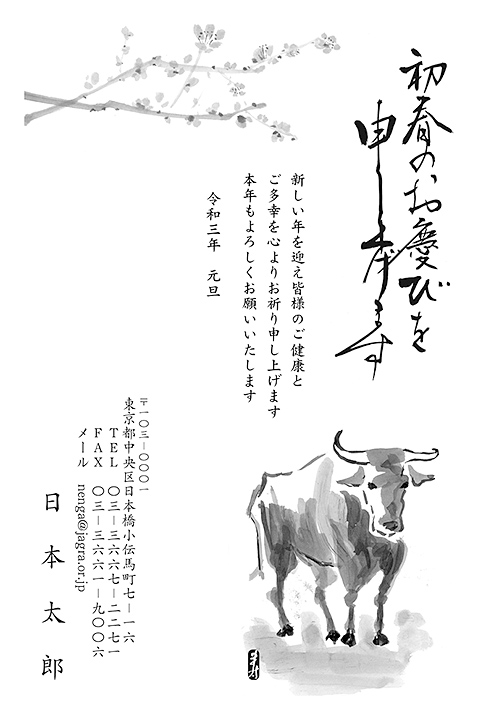 初春のお慶びを
申し上げます
新しい年を迎え皆様のご健康と
ご多幸を心よりお祈り申し上げます
本年もよろしくお願いいたします
令和三年　元旦
〒一〇三－〇〇〇一
東京都中央区日本橋小伝馬町七－一六
TEL　〇三－三六六七－二二七一
FAX　〇三－三六六一－九〇〇六
メール　nenga@jagra.or.jp
日本太郎